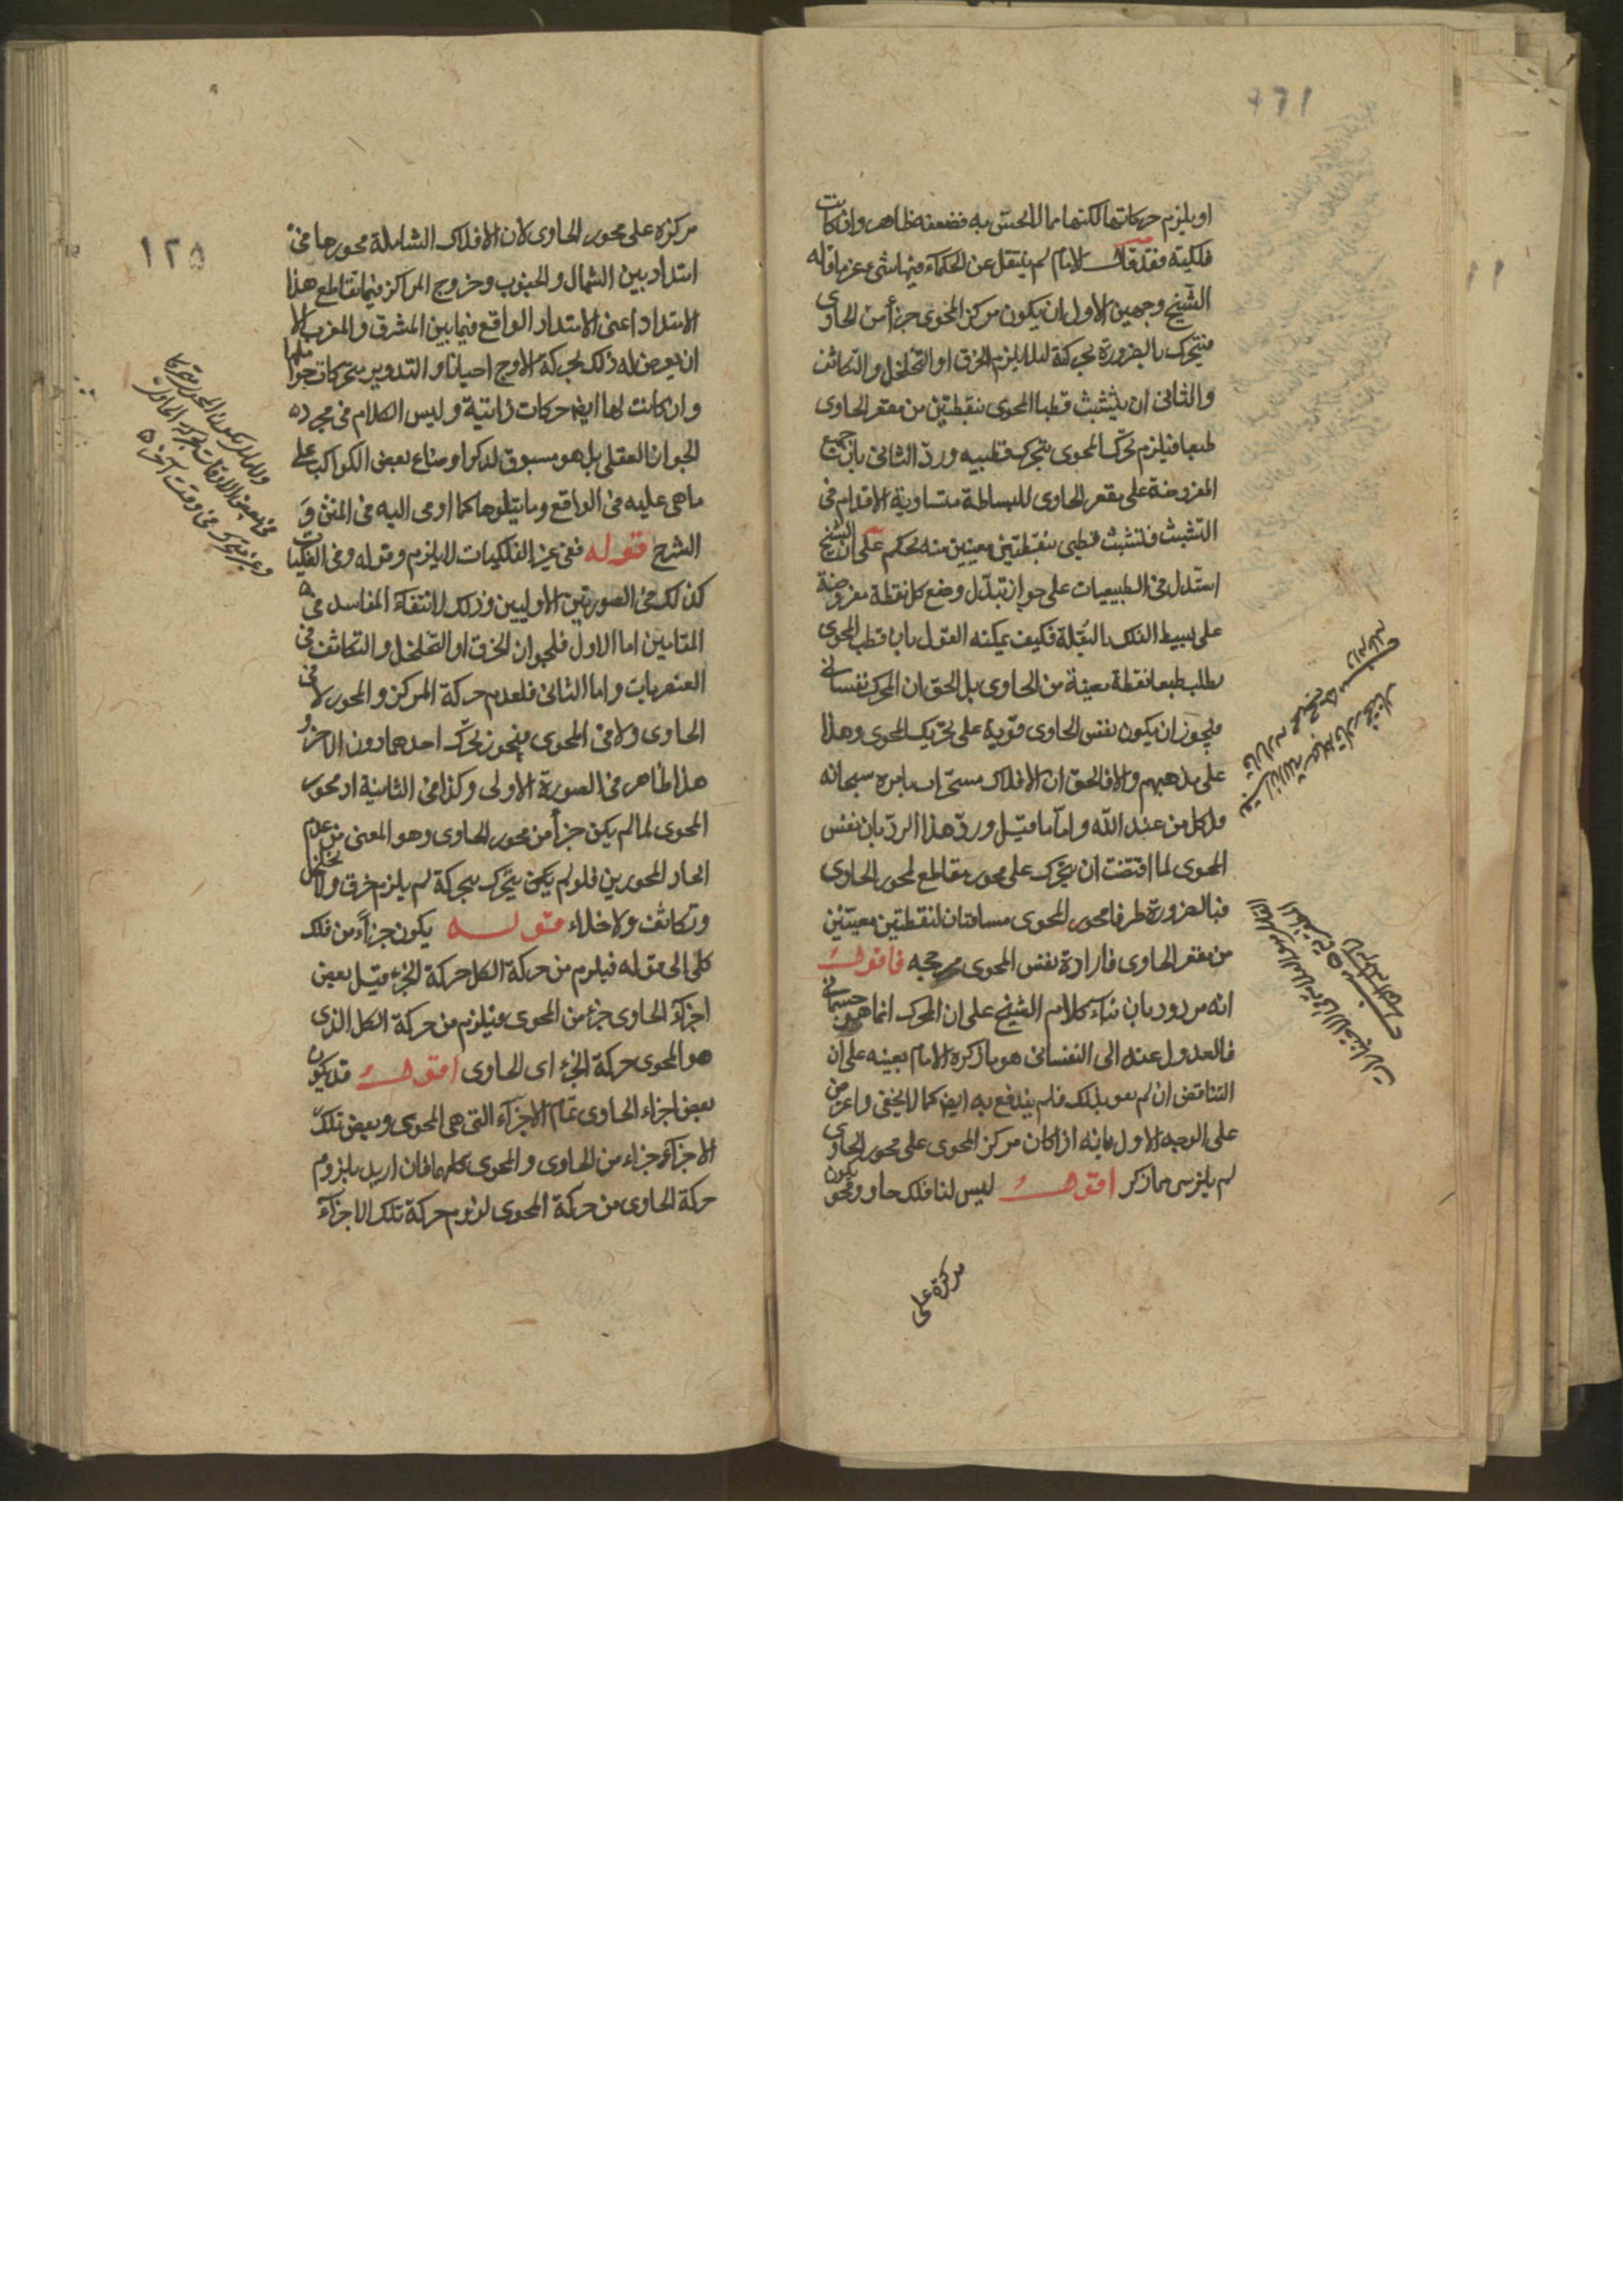 او يلزم حركاتها لكنها مما لا يحس به فضعفه ظاهر وان كانت
فلكية فقد قال الامام لم ينتقل عن الحكماء فيها شئ غير ما قاله
الشيخ وجهين الاول ان يكون مركز المحوى جزأ من الحاوى
فيتحرك بالضرورة بحركته لئلا يلزم الخرق او التخلخل والتكاثف
والثانى ان يتشبث قطبا المحوى بنقطتين من مقعر الحاوى
طبعا فيلزم تحرك المحوى بتحرك قطبيه ورد الثانى بان جميع
المفروضة على مقعر الحاوى للبساطة متساوية الاقدام فى
التشبث فتشبث قطبى بنقطتين معينين منه تحكم على ان الشيخ
استدل فى الطبيعيات على جواز تبدل وضع كل نقطة مفروضة
على بسيط الفلك بالنقلة فكيف يمكنه القول بان قطب المحوى
يطلب طبعا نقطة معينة من الحاوى بل الحق ان المحرك نفسانى
فيجوز ان يكون نفس الحاوى قوية على تحريك المحوى وهذا
على مذهبهم والا فالحق ان الافلاك مسخرات بامره سبحانه
وكل من عند الله واما ما قيل ورد هذا الرد بان نفس
المحوى لما اقتضت ان يتحرك على محور مقاطع لمحور الحاوى
فبالضرورة طرفا محور المحوى مسامتان لنقطتين معينتين
من مقعر الحاوى فارادة نفس المحوى مرجحه فاقول
انه مردود بان بناء كلام الشيخ على ان المحرك انما هو جسمانى
فالعدول عنه الى النفسانى هو ما ذكره الامام بعينه على ان
التناقض ان لم يعد بذلك فلم يندفع به ايضا كما لا يخفى واعترض
على الوجه الاول بانه اذا كان مركز المحوى على محور الحاوى
لم يلزم شئ مما ذكر اقول ليس لنا فلك حاو ومحوى يكون
مركزه على
١٢٥
مركزه على محور الحاوى لان الافلاك الشاملة محورها فى
امتداد بين الشمال والجنوب وخروج المراكز فيما يقاطع هذا
الامتداد اعنى الامتداد الواقع فيما بين المشرق والمغرب الا
ان يعرض له ذلك بحركة الاوج احيانا والتدوير متحركات حواملها
وان كانت لها ايضا حركات ذاتية وليس الكلام فى مجرد
الجواز العقلى بل هو مسبوق لذكر اوضاع بعض الكواكب على
ما هى عليه فى الواقع وما يتلوها كما اومى اليه فى المتن و
الشرح قوله ففى غير الفلكيات لا يلزم وقوله وفى الفلكيات
كذلك فى الصورتين الاوليين وذلك لانتفاء المفاسد فى
المقامين اما الاول فلجواز الخرق او التخلخل والتكاثف فى
العنصريات واما الثانى فلعدم حركة المركز والمحور لا فى
الحاوى ولا فى المحوى فيجوز تحرك احدهما دون الاخر و
هذا ظاهر فى الصورة الاولى وكذا فى الثانية اذ محور
المحوى لما لم يكن جزأ من محور الحاوى وهو المعنى من عدم
اتحاد المحورين فلو لم يكن يتحرك بحركة لم يلزم خرق ولا تخلخل
وتكاثف ولا خلاء قوله يكون جزأ من فلك
كلى الى قوله فيلزم من حركة الكل حركة الجزء قيل بعض
اجزاء الحاوى جزء من المحوى فيلزم من حركة الكل الذى
هو المحوى حركة الجزء اى الحاوى اقول قد يكون
بعض اجزاء الحاوى تمام الاجزاء التى هى المحوى وبعض تلك
الاجزاء جزاء من الحاوى والمحوى كلهما فان اريد بلزوم
حركة الحاوى من حركة المحوى لزوم حركة تلك الاجزاء